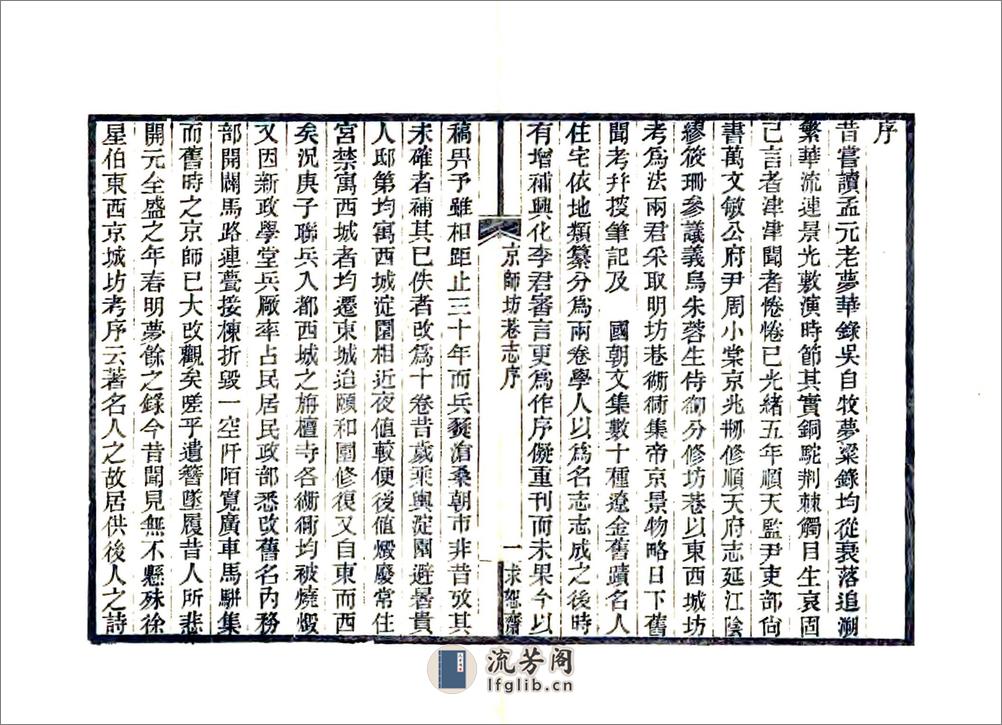 序
昔嘗讀孟元老夢華錄吳自牧夢粱錄均從衰落追溯
繁華流連景光敷演時節其實銅駝荆棘觸目生哀固
已言者津津聞者惓惓已光緒五年順天監尹吏部尙
書萬文敏公府尹周小棠京兆刱修順天府志延江陰
繆筱珊參議義烏朱蓉生侍御分修坊巷以東西城坊
考爲法兩君采取明坊巷衚衕集帝京景物略日下舊
聞考幷搜筆記及 國朝文集數十種遼金舊蹟名人
住宅依地類纂分爲兩卷學人以爲名志志成之後時
有增補興化李君審言更爲作序儗重刊而未果今以
京師坊巷志序 一 求恕齋
稿畀予雖相距止三十年而兵燹滄桑朝市非昔攷其
未確者補其已佚者改爲十卷昔歲乘輿淀園避暑貴
人邸第均寓西城淀園相近夜値較便後値燬廢常住
宮禁寓西城者均遷東城迨頤和園修復又自東而西
矣況庚子聯兵入都西城之旃檀寺各衚衕均被燒燬
又因新政學堂兵厰率占民居民政部悉改舊名內務
部開闢馬路連甍接棟折毀一空阡陌寬廣車馬駢集
而舊時之京師已大改觀矣嗟乎遺簪墜履昔人所悲
開元全盛之年春明夢餘之錄今昔聞見無不懸殊徐
星伯東西京城坊考序云著名人之故居供後人之詩
流芳阁
lfglib.cn